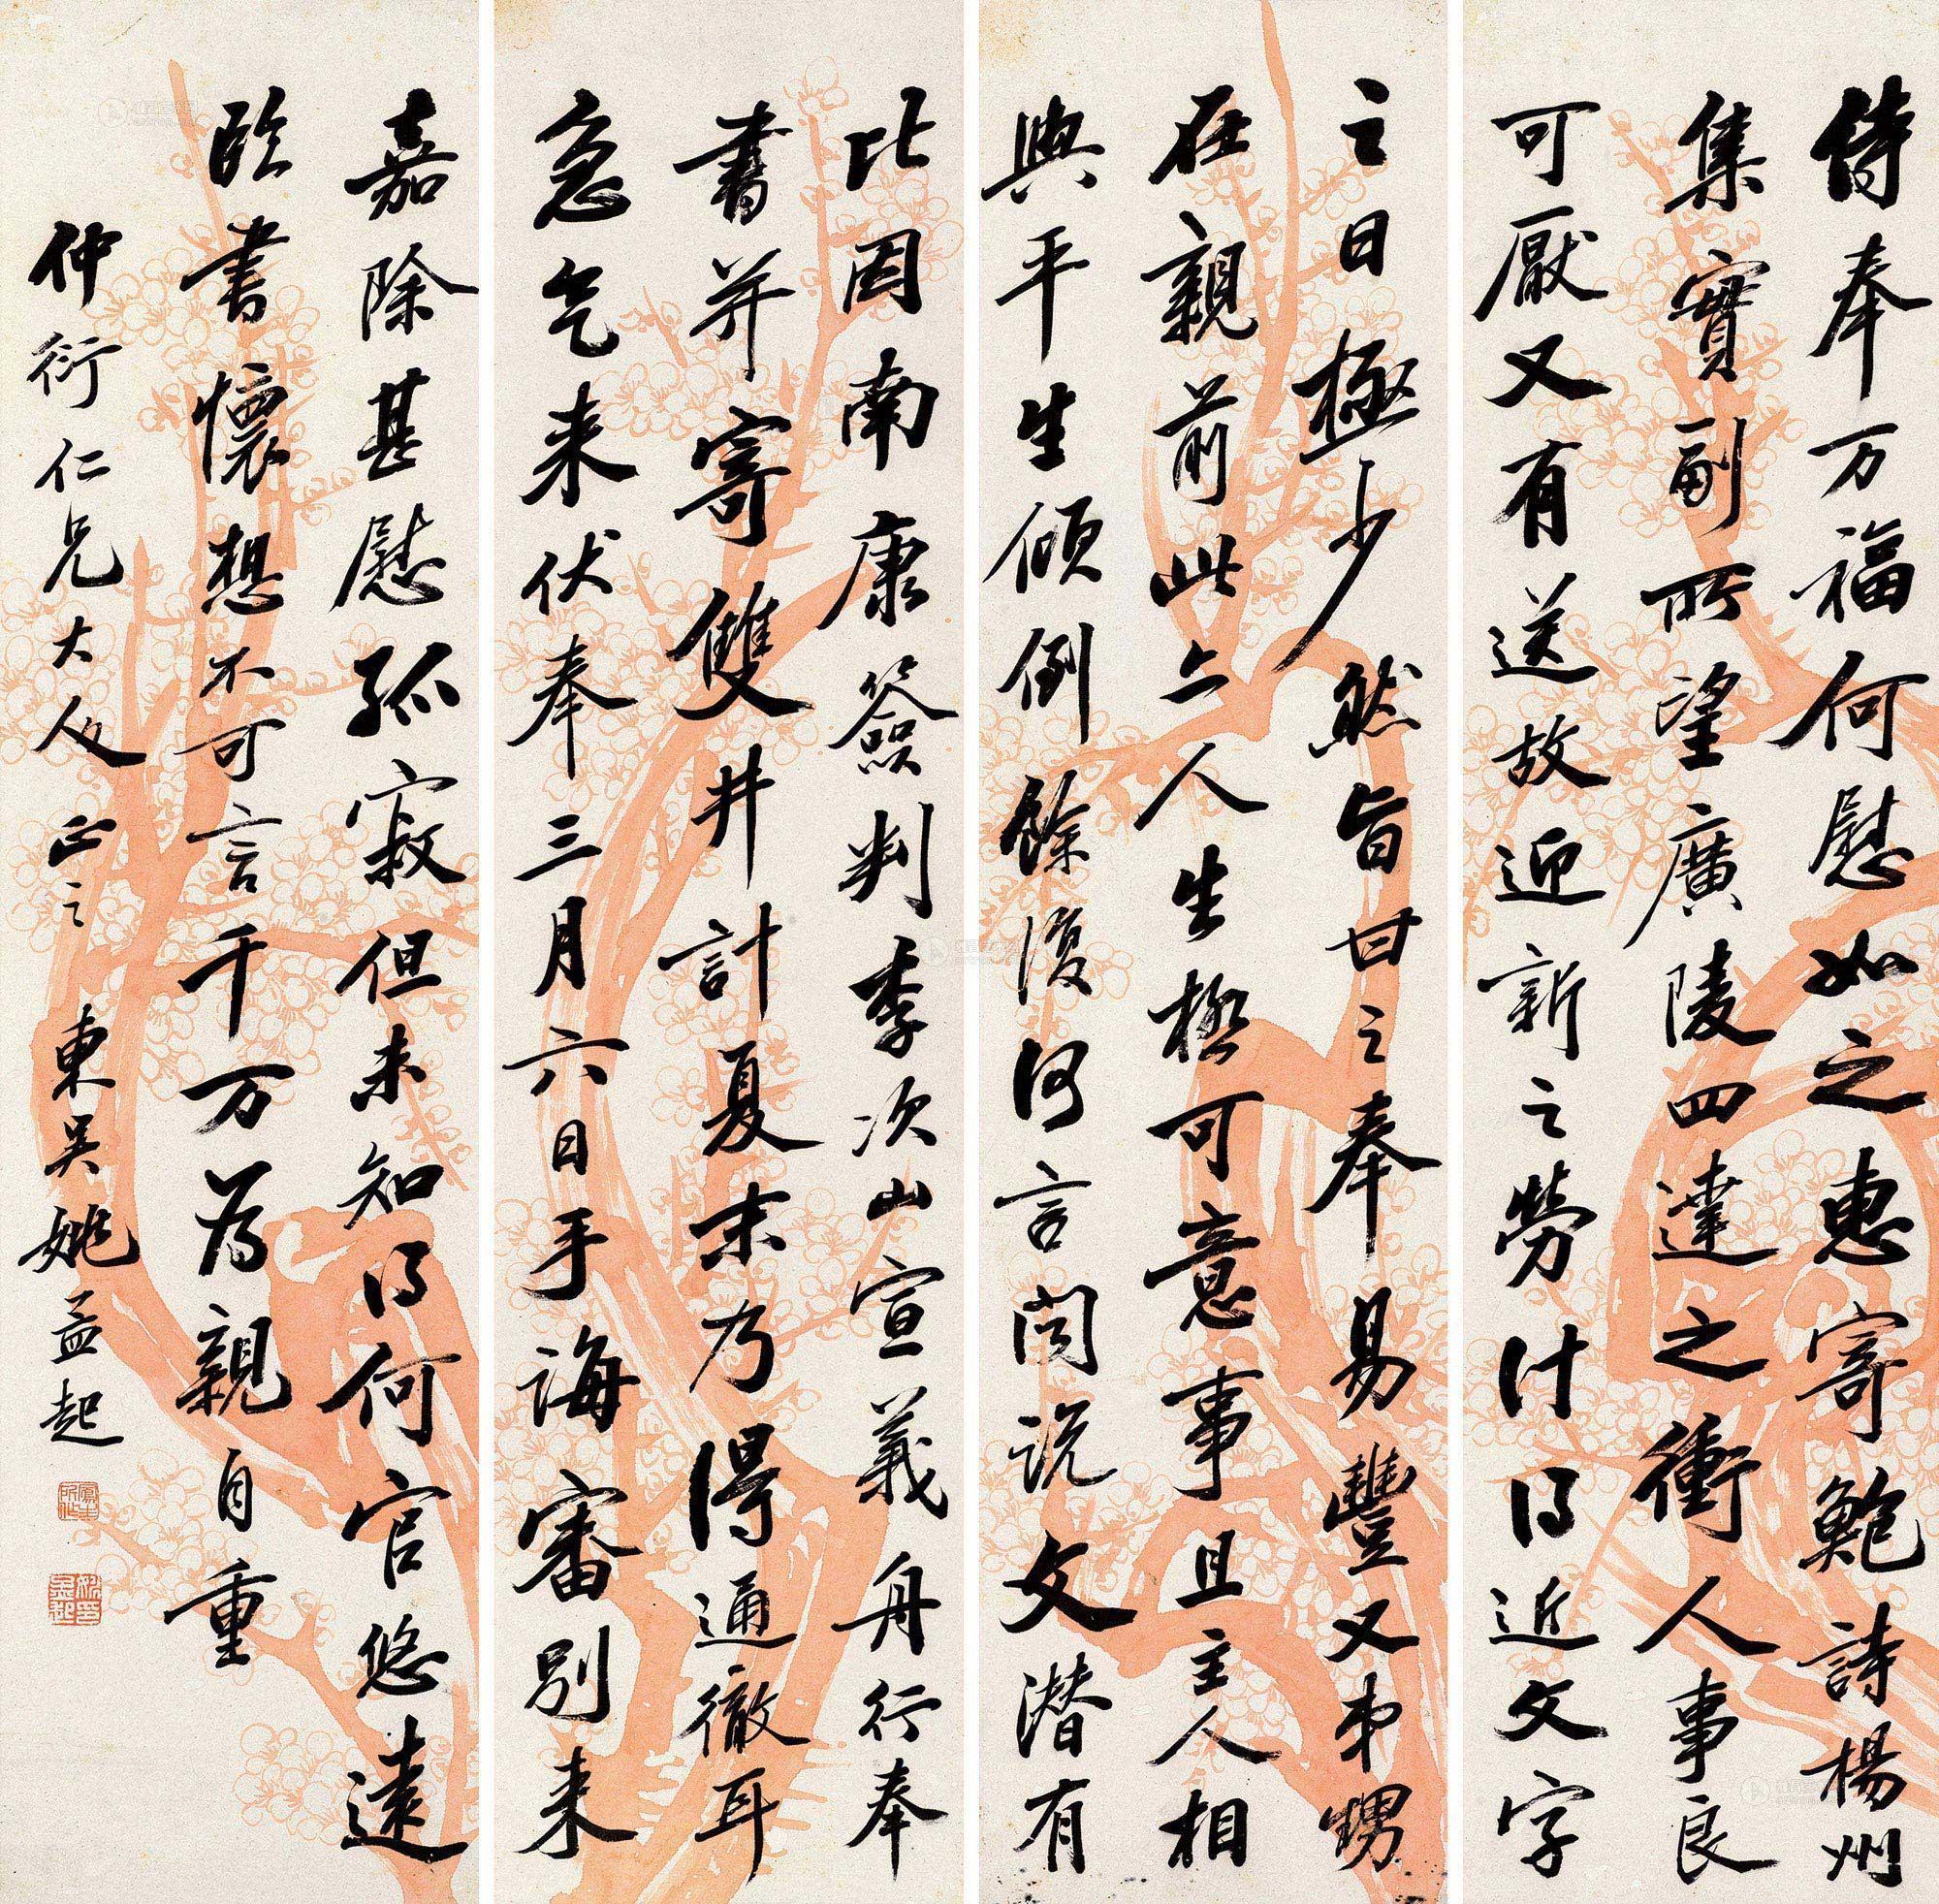 侍奉万福何慰如之惠寄鮑詩楊州
集實副所望廣陵四達之衝人事良
可厭又有送故迎新之勞計得近文字
之日極少然旨甘之奉易豐又弟甥
在親前此亦人生極可意事且主人相
與平生傾倒餘復何言聞説文潜有
比因南康簽判李次山宣義舟行奉
書并寄雙井計夏末乃得通徹耳
急足来伏奉三月六日手誨審別来
嘉除甚慰孤寂但未知得何官悠遠
臨書懷想不可言千万為親自重
仲衍仁兄大人正之 東吴姚孟起
姚印孟起